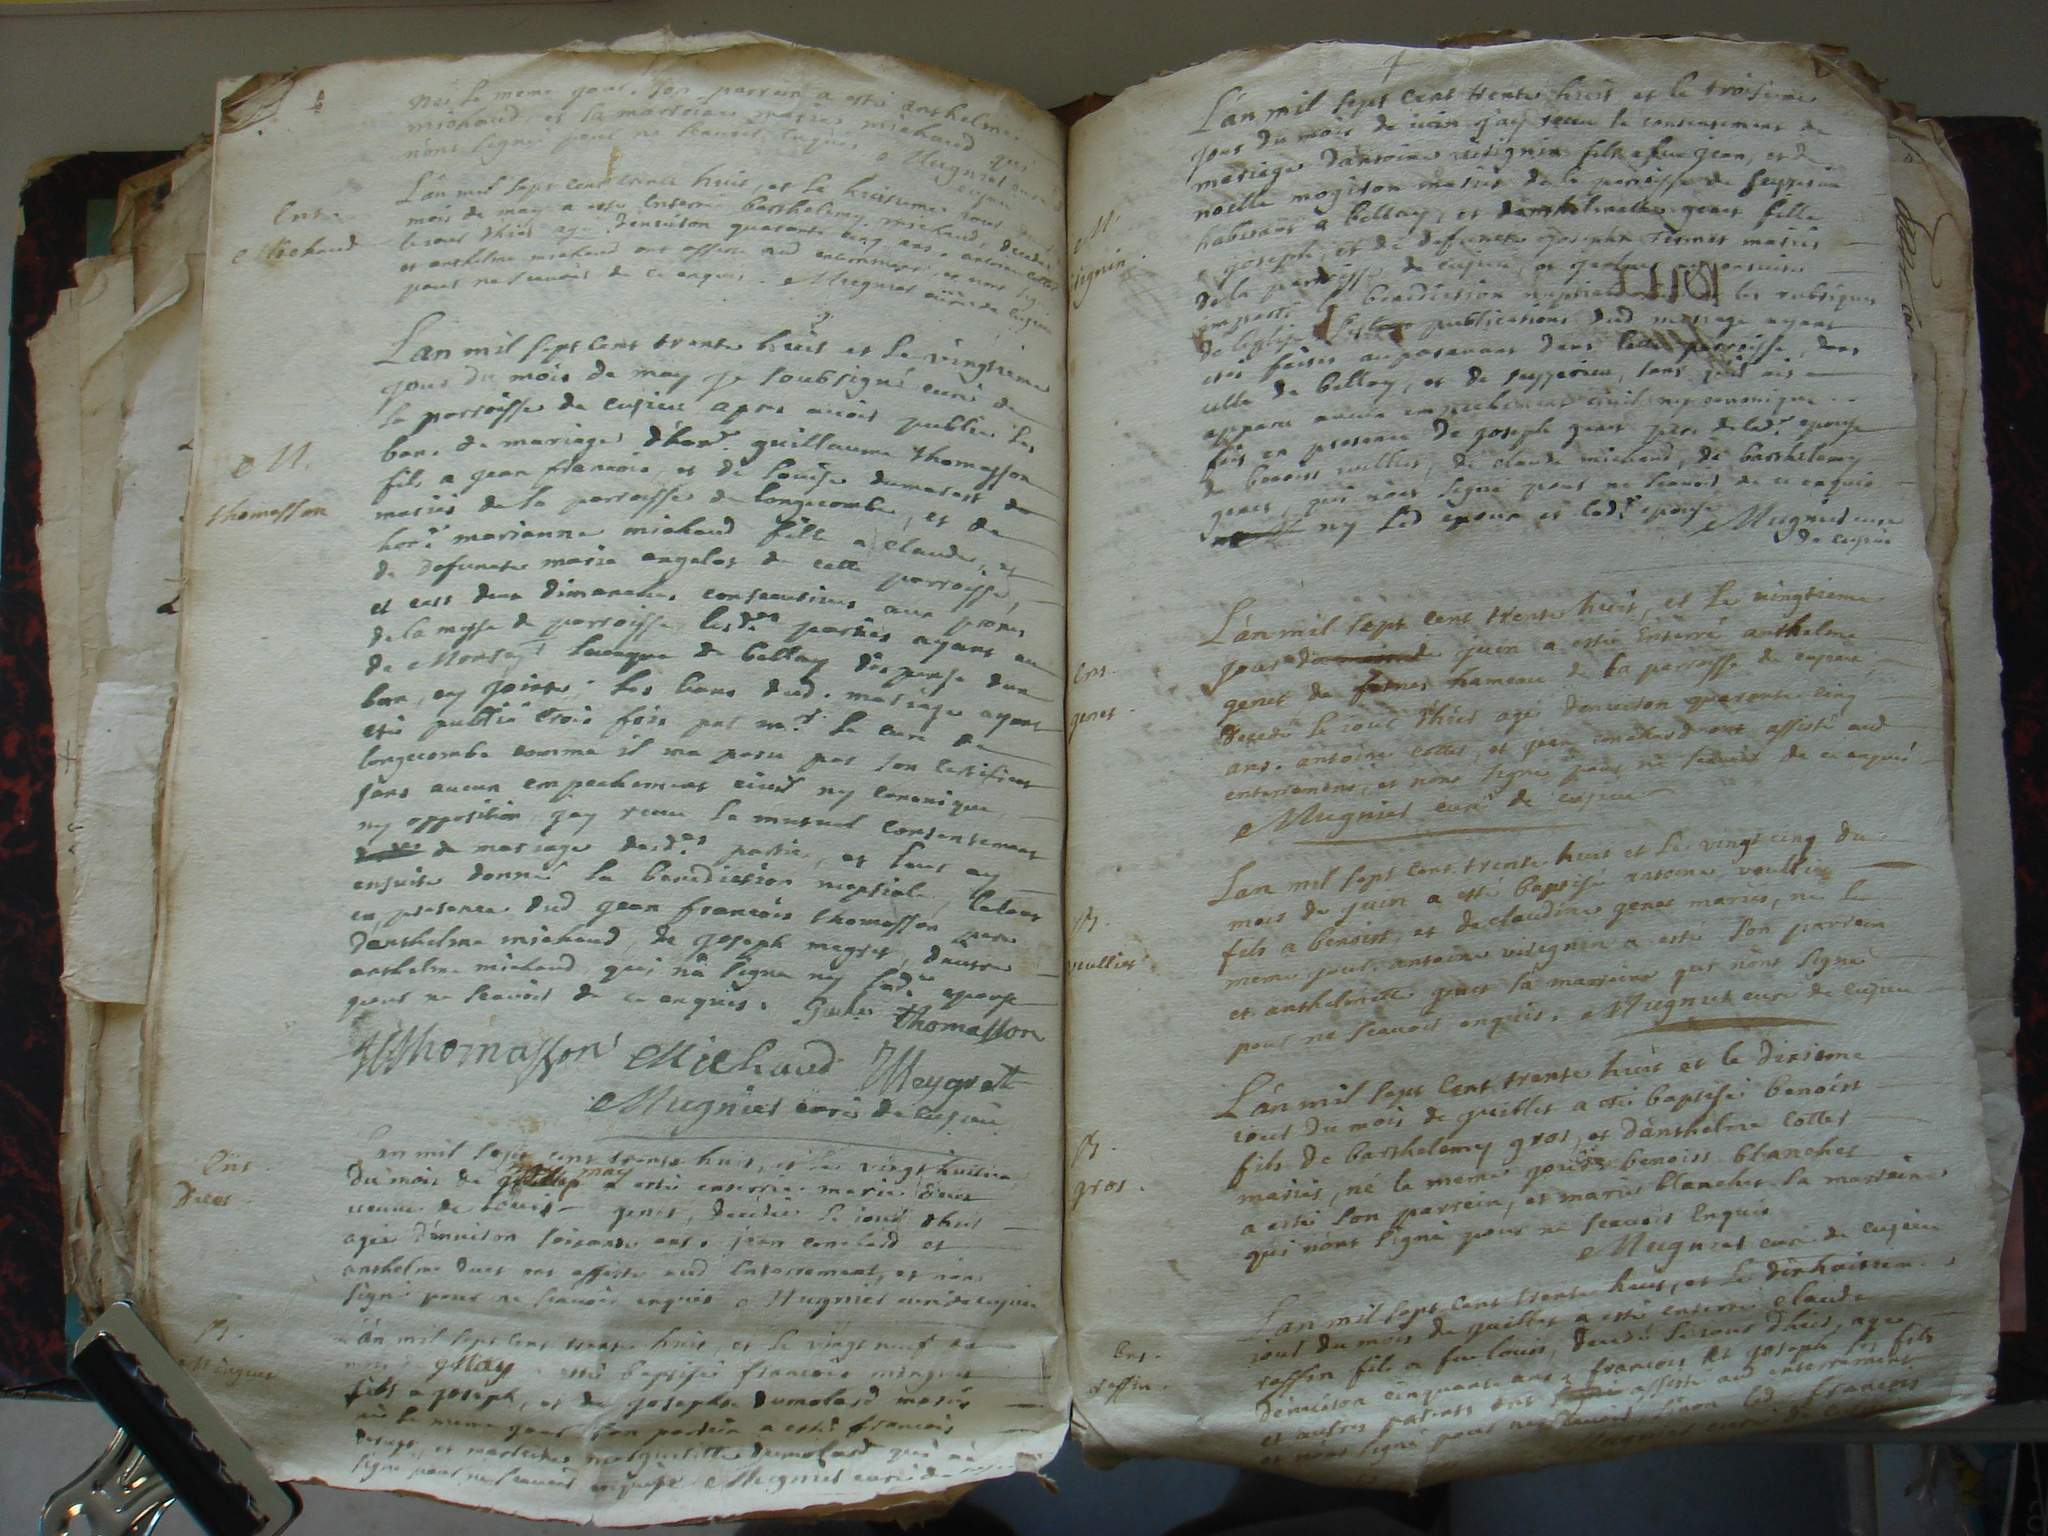 né le meme jour. son parrein a esté anthelme
michaud, et la marreine marie michaud qui
n'ont signé pour ne scavoir enquis. Mugniet curé
Ent.
Michaud
L'an mil sept cent trente huit, et le huitieme jour du
mois de may a esté enterré barthelemy michaud, decedé
le jour d'hier agé d'environ quarante cinq ans. antoine collet
et anthelme michaud ont assisté aud enterrement et n'ont signé
pour ne scavoir de ce enquis. Mugniet curé de cuzieu
M.
thomasson
L'an mil sept cent trente huit et le vingtieme
jour du mois de may je soubsigné curé de
la parroisse de cuzieu apres avoir publié les
bans de mariage d'hon.r guillaume thomasson
fils a jean francois, et de louise dumarest de
mariés de la parroisse de longecombe, et de
hon.e marianne michaud fille a claude, et
de defuncte marie angelot de cette parroisse,
et ces deux dimanches consecutives aux prones
de la messe de parroisse, lesd.es parties ayant eu
de Monseig.r levesque de bellay dispense d'un
ban, cy jointe; les bans dud. mariage ayant
esté publié trois fois par m.r le curé de
longecombe comme il m'a paru par son certificat
sans aucun empechement civil ny canonique
ny opposition, j'ay receu le mutuel consentement
de mariage desd.es parties, et leur ay
ensuite donné la benediction nuptiale, le tout
en presence dud jean francois thomasson pere
d'anthelme michaud, de joseph meygret, d'autre
anthelme michaud qui n'a signé ny lad.e epouse
pour ne scavoir de ce enquis. Guil.e thomasson
Thomasson Michaud Meygrett
Mugniet curé de cuzieu
Ent.
L'an mil sept cent trente huit, et le vingt huitie.
du mois de may a esté enterrée marie
veuve de louis genet, decedée le jour d'hier
agée d'environ soixante ans. jean conchard et
anthelme duet ont assisté aud enterrement, et n'ont
signé pour ne scavoir enquis Mugniet curé de cuzieu
B.
Minguet
L'an mil sept cent trente huit, et le vingt neuf du
mois de May a esté baptisé francois minguet
fils a joseph, et de josephe dumolard mariés
né le meme jour son parrein a esté francois
et marreine margueritte dumolard qui n'ont
signé pour ne scavoir enquis Mugniet curé de cuzieu
M.
visignin.
L'an mil sept cent trente huit et le troisieme
jour du mois de juin j'ay receu le consentement de
mariage d'antoine visignin fils a feu jean, et de
noelle mogison mariés de la paroisse de seyzerieu
habitant a bellay, et d'anthelmette genet fille
a joseph, et de defuncte mariés
de la parroisse de cuzieu, et je leur ay ensuite
imparti la benediction nuptiale les rubriques
de l'eglise publications dud mariage ayant
esté faites auparavant dans lade parroisse, dans
celle de bellay, et de seyzerieu, sans qu'il ait
apparu aucun empechement civil ny canonique
fait en presence de joseph genet pere de lad.e epouse
de benoist vullier, de claude michaud, de barthelemy
genet, qui n'ont signé pour ne scavoir de ce enquis
ny led epoux et lad.e epouse Mugniet curé
de cuzieu
Ent.
genet
L'an mil sept cent trente huit, et le vingtieme
jour de juin a esté enterré anthelme
genet de hameau de la parroisse de cuzieu
decedé le jour d'hier agé d'environ quarante cinq
ans. antoine collet, et jean conchard ont assisté aud
enterrement, et n'ont signé pour ne scavoir de ce enquis
Mugniet curé de cuzieu
B.
veullier
L'an mil sept cent trente huit et le vingt cinq du
mois de juin a esté baptisé antoine veullier
fils a benoist, et de claudine genet mariés, né le
meme jour. antoine visignin a esté son parrein
et anthelmette genet sa marreine qui n'ont signé
pour ne scavoir enquis. Mugniet curé de cuzieu
B.
gros.
L'an mil sept cent trente huit et le dixieme
jour du mois de juillet a esté baptisé benoist
fils de barthelemy gros, et d'anthelme collet
mariés, né le meme jour benoist blanchet
a esté son parrein, et marie blanchet sa marreine
qui n'ont signé pour ne scavoir enquis
Mugniet curé de cuzieu
Ent.
raffin.
L'an mil sept cent trente huit, et le dixhuitiem.
jour du mois de juillet a esté enterré claude
raffin fils a feu louis, decedé le jour d'hier, agé
d'environ cinquante ans francois et joseph ses fils
et autres parents ont assisté aud enterrement
et n'ont signé pour ne scavoir sinon led. francois
Mugniet curé de cuzieu